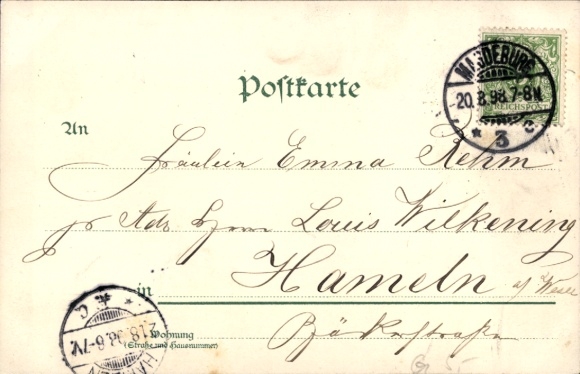 MAGDEBURG
20.8.98.7-8N.
REICHSPOST
* 3 c
Postkarte
An
Fräulein Emma Rehm
pr Adr Herrn Louis Wilkening
in Hameln a/ Weser
Wohnung
(Straße und Hausnummer)
Bäckerstraße
HAMELN
21.8.98.6-7V.
* c